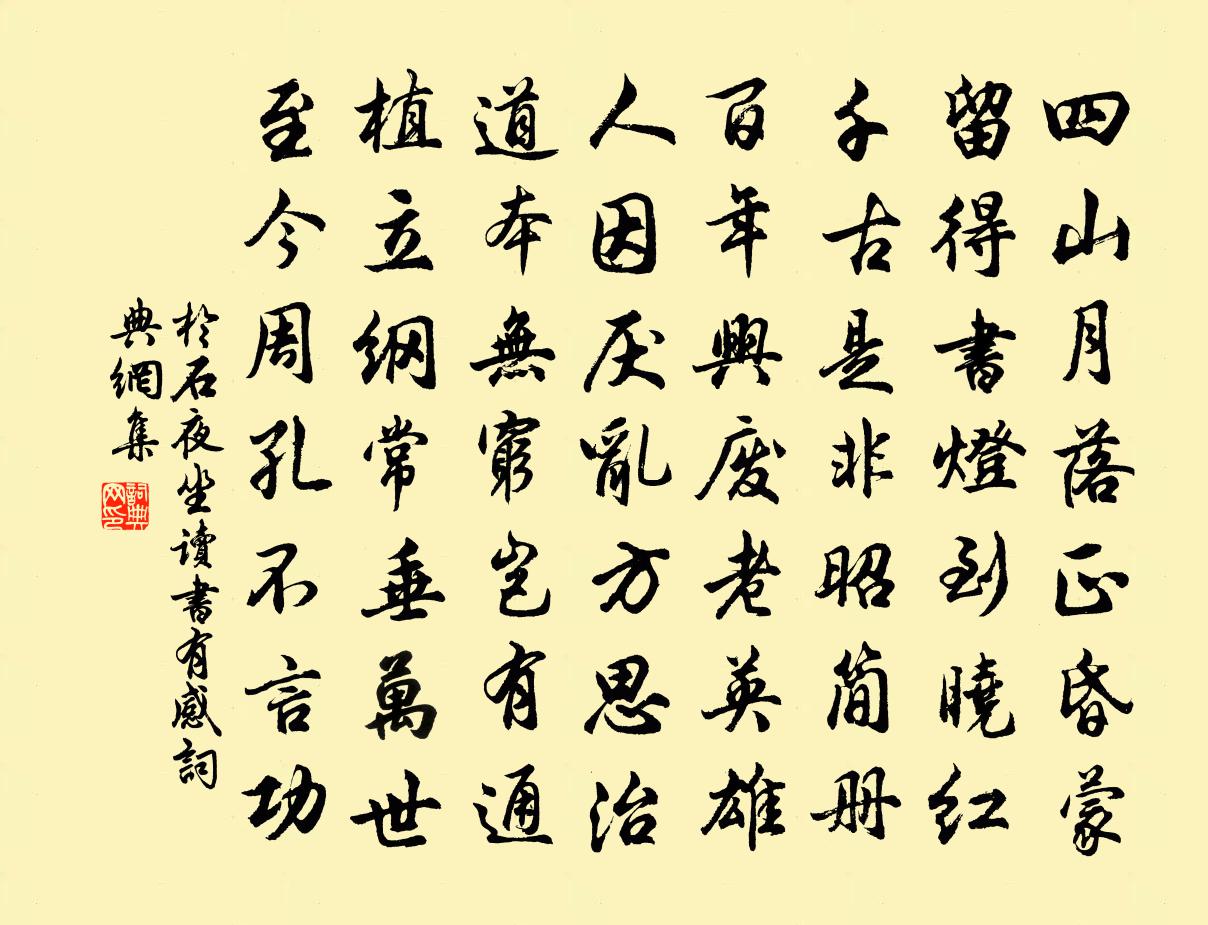 四山月落正昏蒙
留得書燈到曉紅
千古是非昭简册
百年興廢老英雄
人因厌亂方思治
道本無窮豈有通
植立綱常垂萬世
至今周孔不言功
於石夜坐讀書有感詞
典網集
詞典网印